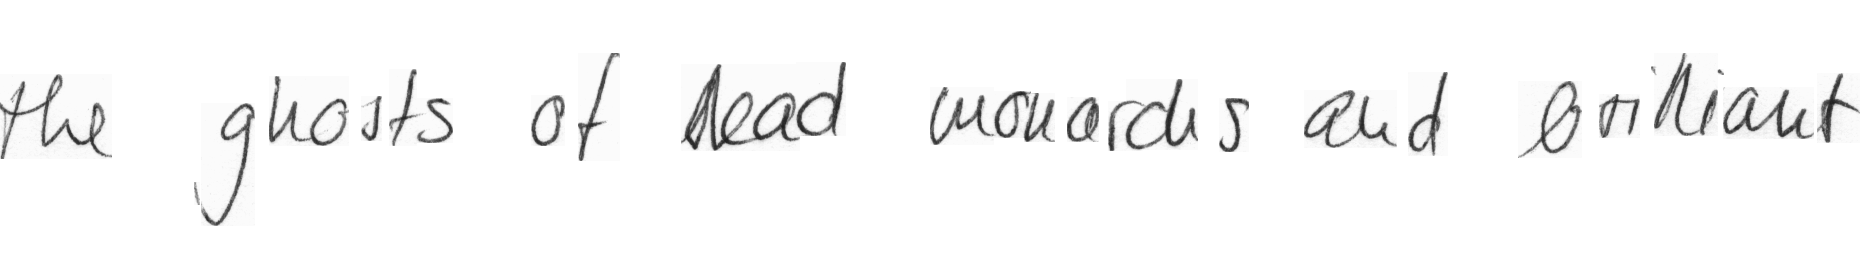 the ghosts of dead monarchs and brilliant